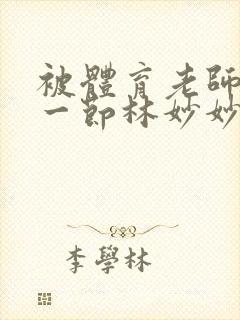 被體育老師
一節林妙妙
李學林